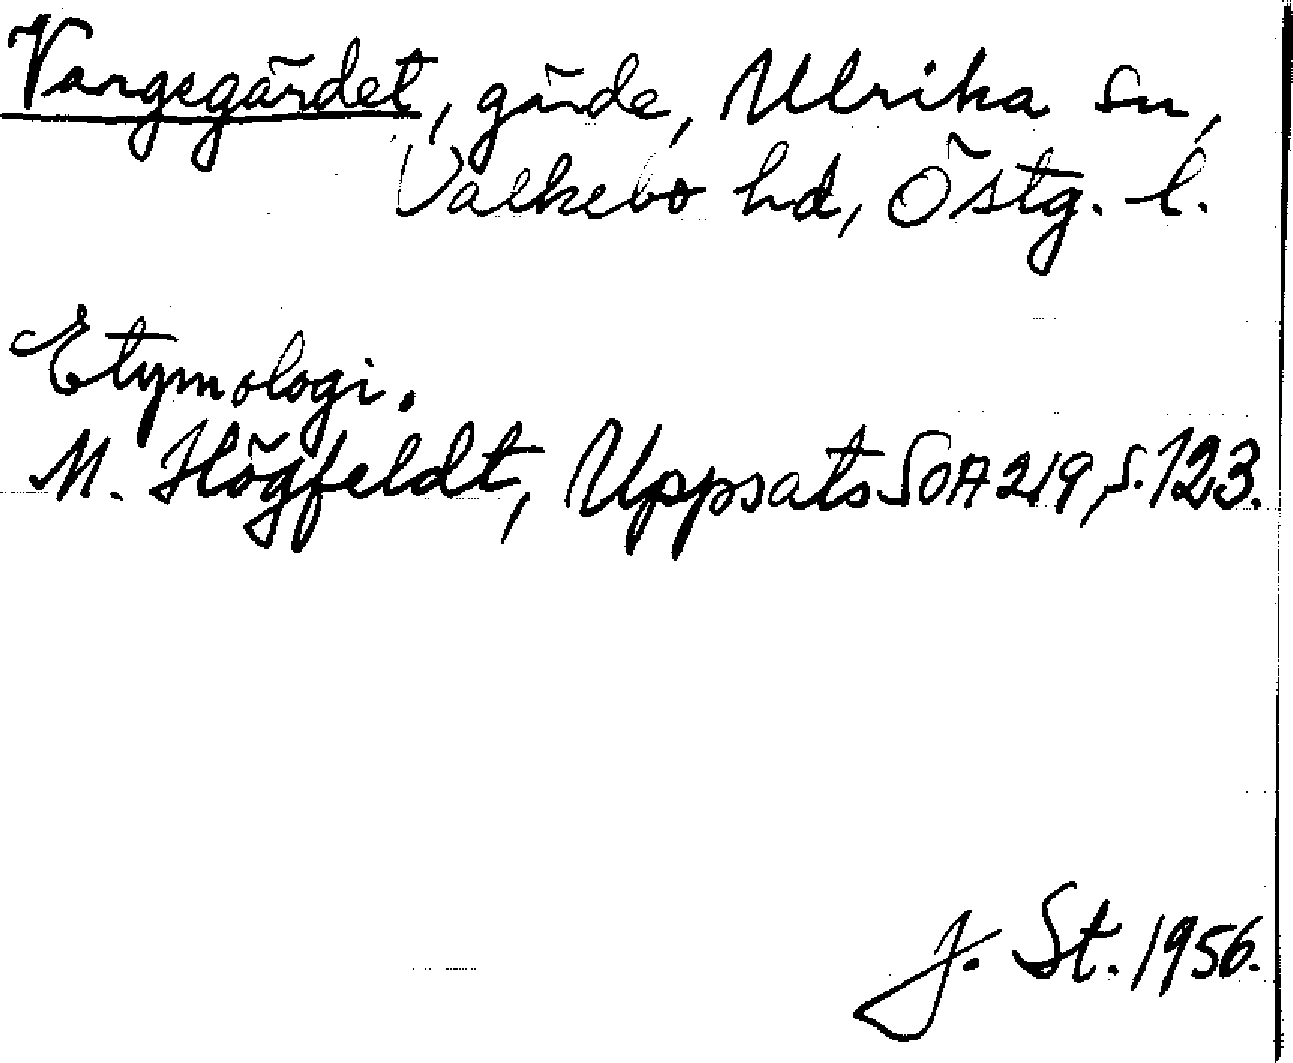 Vargsgärdet, gärde, Ulrika sn,
Valkebo hd, Östg. l.
Etymologi.
M. Högfeldt, Uppsats SOA 219, s. 123.
J. St. 1956.